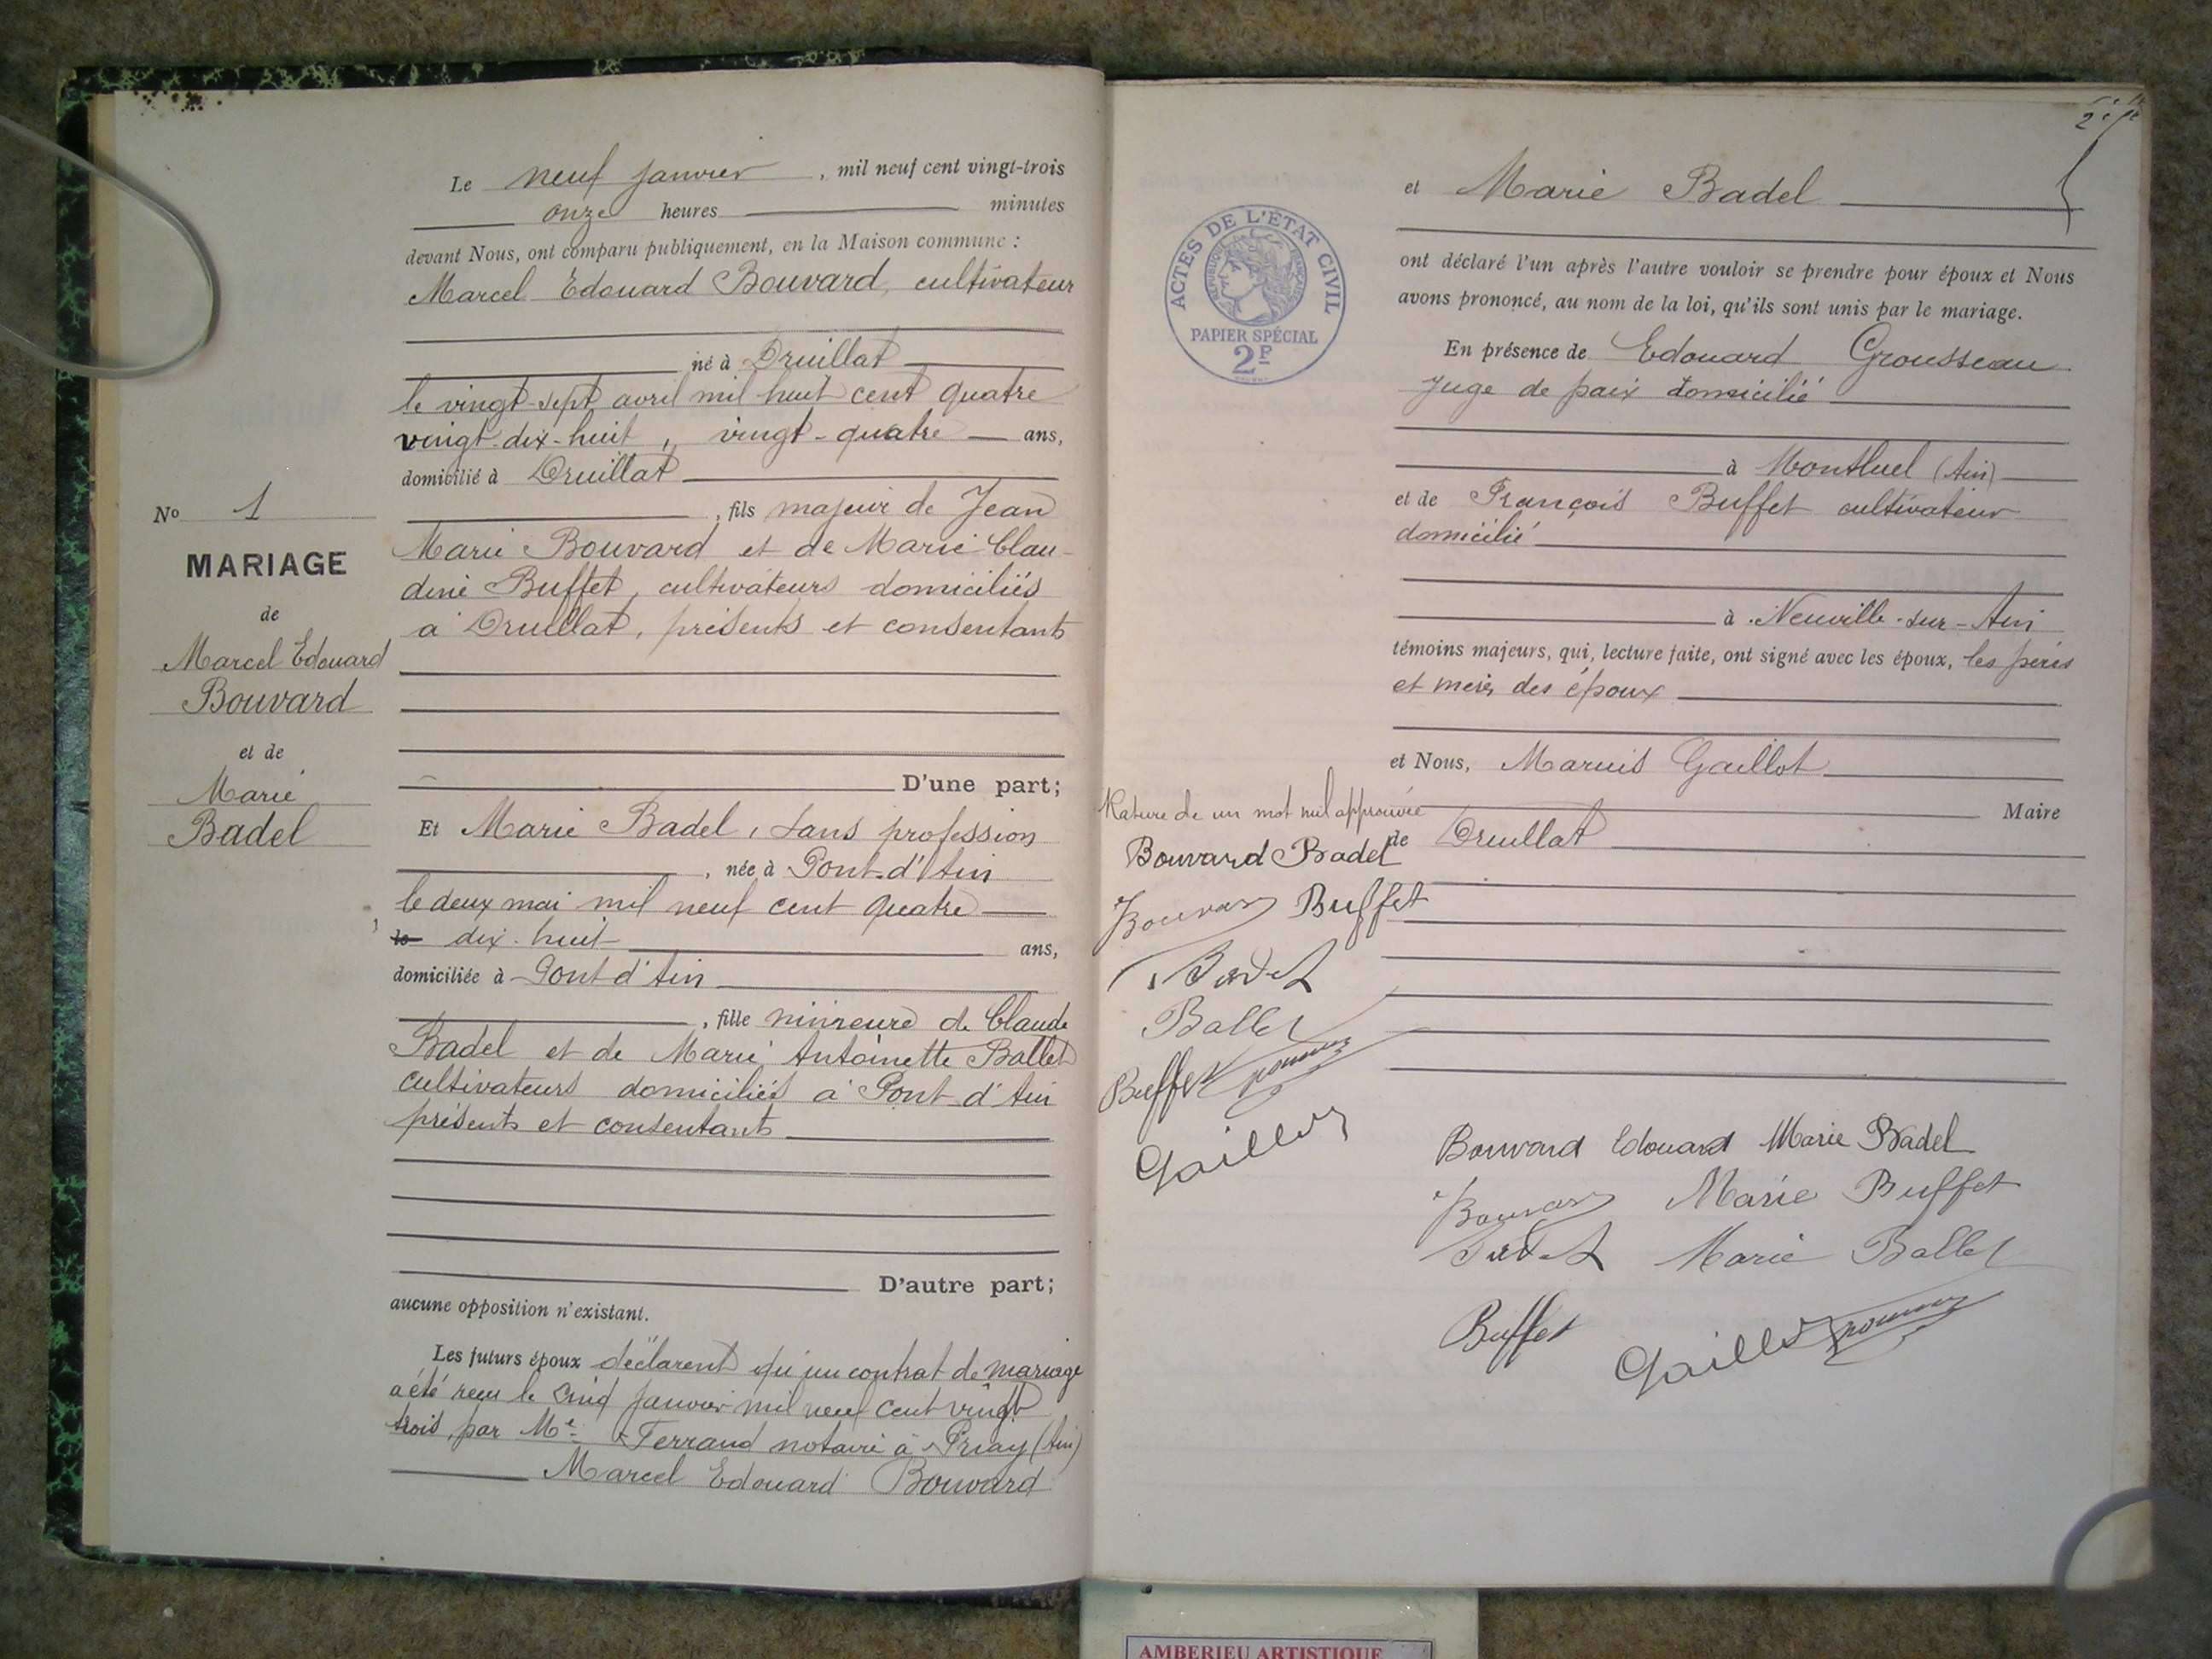 Le neuf janvier, mil neuf cent vingt-trois
onze heures minutes
devant Nous, ont comparu publiquement, en la Maison commune :
Marcel Edouard Bouvard, cultivateur
né à Druillat
le vingt-sept avril mil huit cent quatre
vingt-dix-huit, vingt-quatre ans,
domicilié à Druillat
, fils majeur de Jean
Marie Bouvard et de Marie Clau-
dine Buffet, cultivateurs domiciliés
à Druillat, présents et consentants
D'une part;
No 1
MARIAGE
de
Marcel Edouard
Bouvard
et de
Marie
Badel
Et Marie Badel, sans profession
, née à Pont-d'Ain
le deux mai mil neuf cent quatre
dix-huit ans,
domiciliée à Pont d'Ain
, fille mineure de Claude
Badel et de Marie Antoinette Ballet
cultivateurs domiciliés à Pont-d'Ain
présents et consentants
D'autre part;
aucune opposition n'existant.
Les futurs époux déclarent qu'un contrat de mariage
a été reçu le cinq janvier mil neuf cent vingt
trois, par Me Ferrand notaire à Priay (Ain)
Marcel Edouard Bouvard
2
ACTES DE L'ÉTAT CIVIL
RÉPUBLIQUE FRANÇAISE
PAPIER SPÉCIAL
2F
et Marie Badel
ont déclaré l'un après l'autre vouloir se prendre pour époux et Nous
avons prononcé, au nom de la loi, qu'ils sont unis par le mariage.
En présence de Edouard Grousseau
Juge de paix domicilié
à Montluel (Ain)
et de François Buffet cultivateur
domicilié
à Neuville-sur-Ain
témoins majeurs, qui, lecture faite, ont signé avec les époux, les pères
et mères des époux
et Nous, Marius Gaillot
Maire
de Druillat
Rature de un mot nul approuvée
Bouvard Badel
Bouvard Buffet
Badel
Ballet
Buffet
Gaillot
Bouvard Edouard Marie Badel
Bouvard Marie Buffet
Badel Marie Ballet
Buffet
Gaillot
AMBERIEU ARTISTIQUE